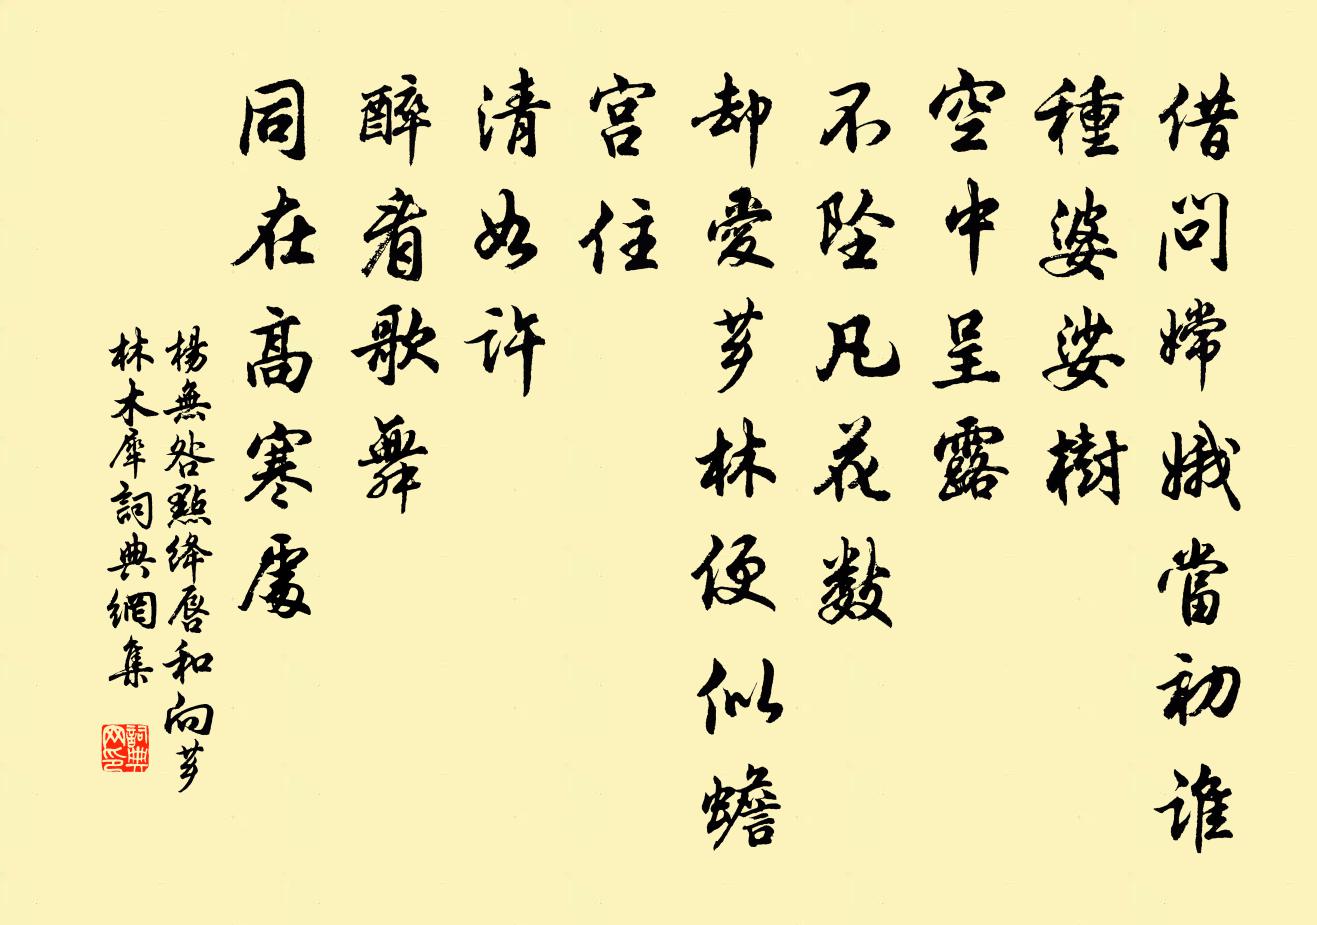 借問嫦娥當初誰
種婆娑樹
空中呈露
不坠凡花数
却愛芗林便似蟾
宫住
清如許
醉看歌舞
同在高寒處
楊無咎點絳唇和向芗
林木犀詞典網集
詞典
网印